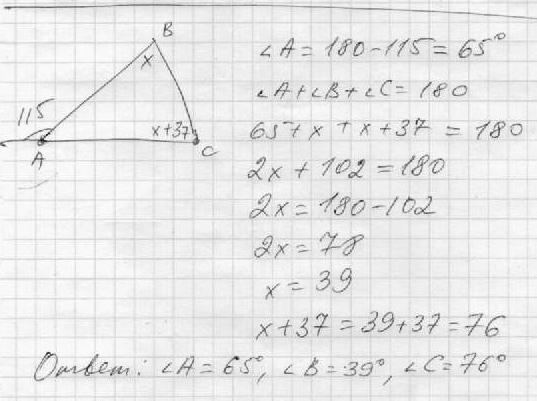 B
x
115
x+37
A
C
∠A = 180 - 115 = 65°
∠A+∠B+∠C = 180
65 + x + x + 37 = 180
2x + 102 = 180
2x = 180 - 102
2x = 78
x = 39
x+37 = 39+37 = 76
Ответ: ∠A = 65°, ∠B = 39°, ∠C = 76°